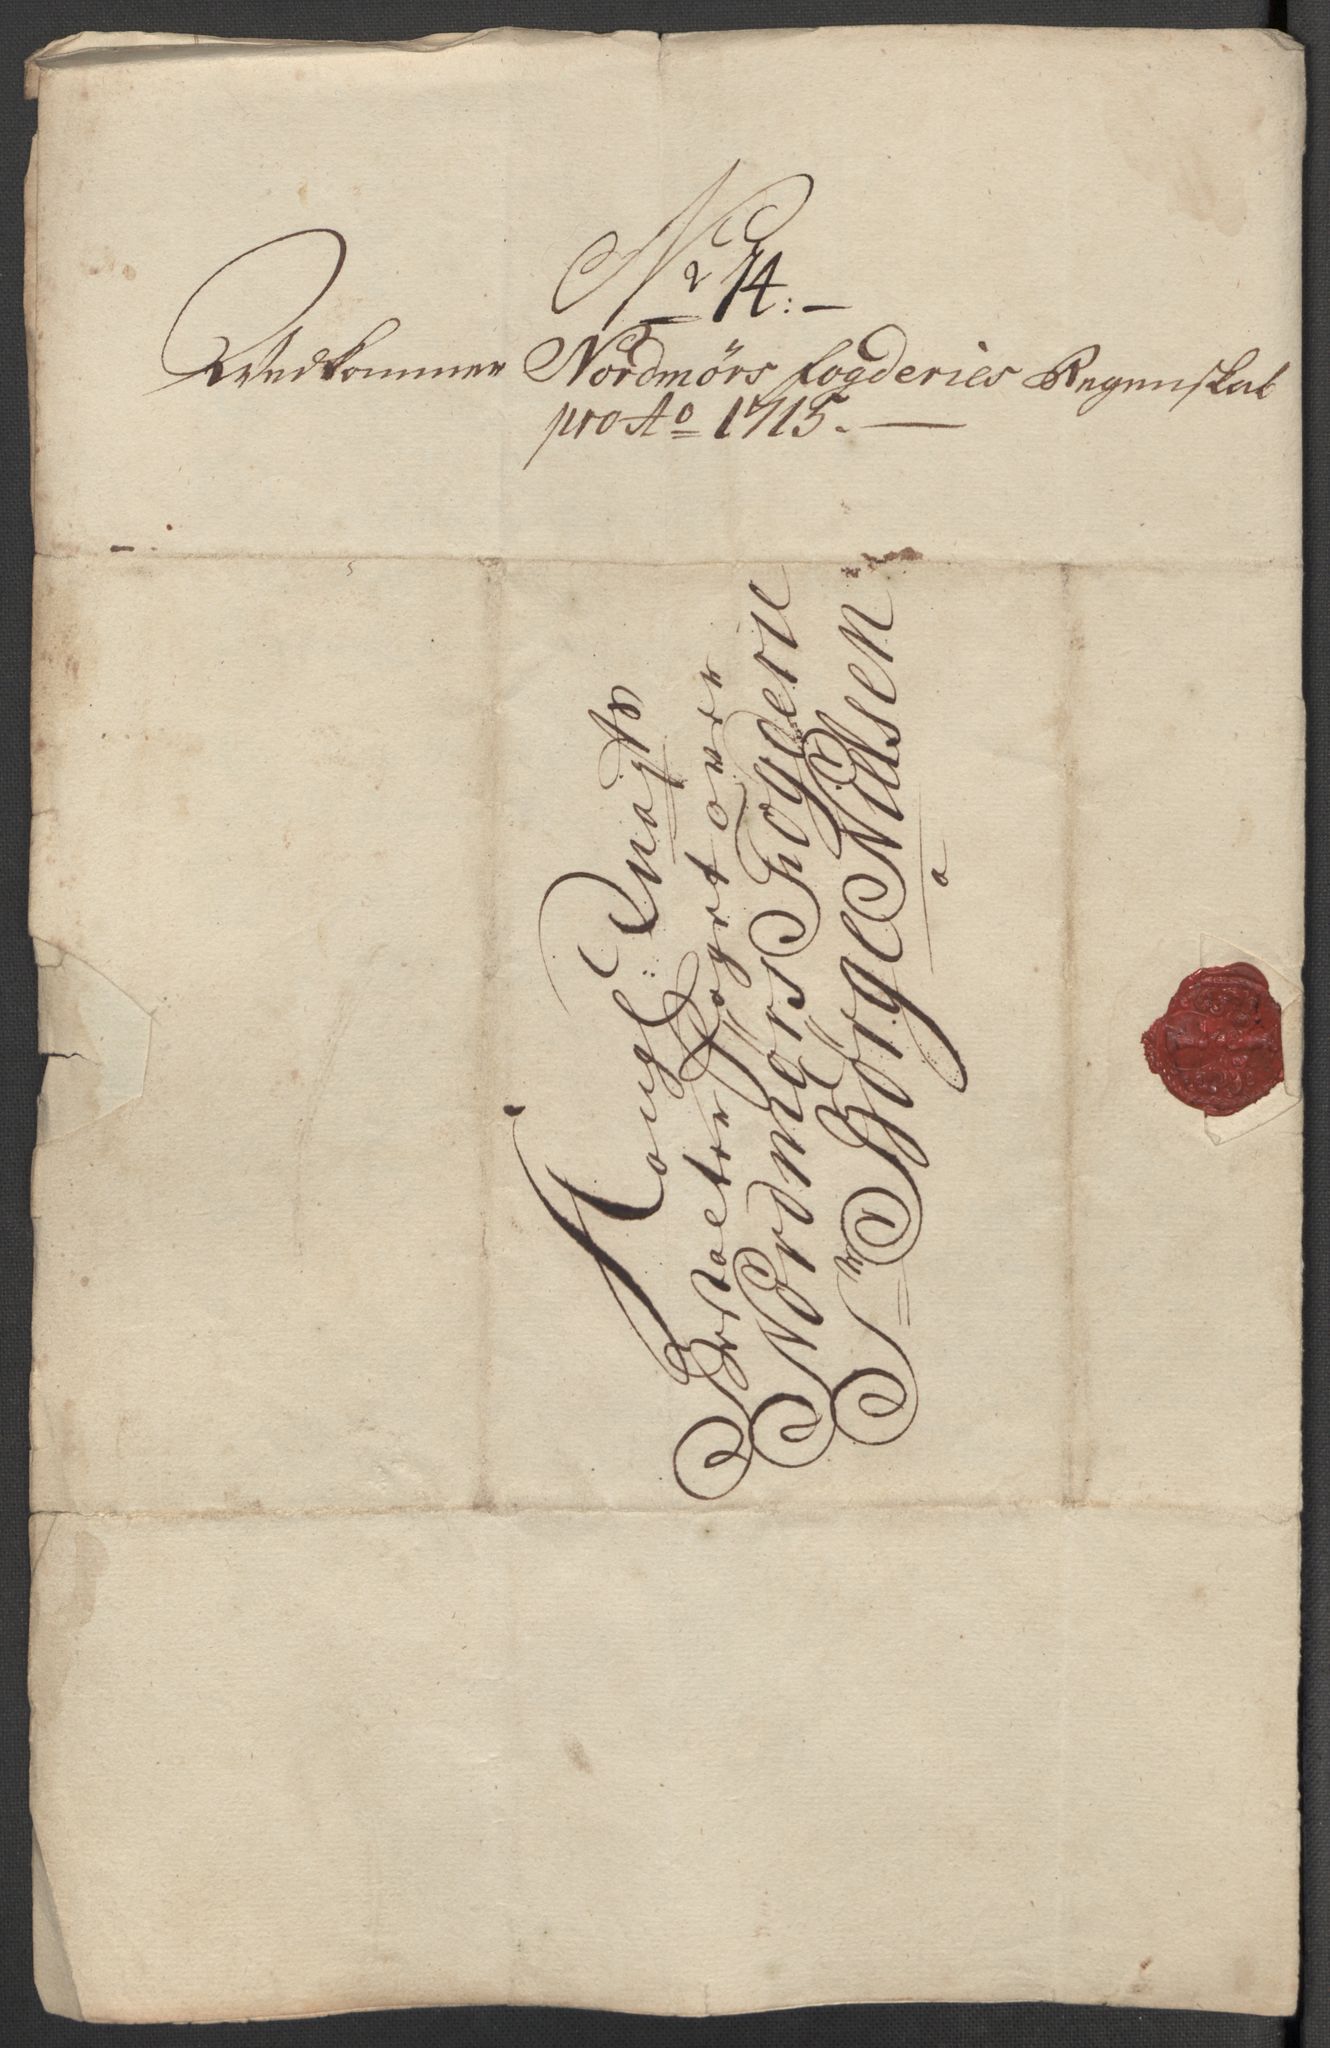 No 14:
Vedkommer Nordmörs fogderies Regenskab
pro Ao 1715.
Kongl: Mayts
Fogt over
Nordmörs Fogderie
Sr Börge Nilsen
a